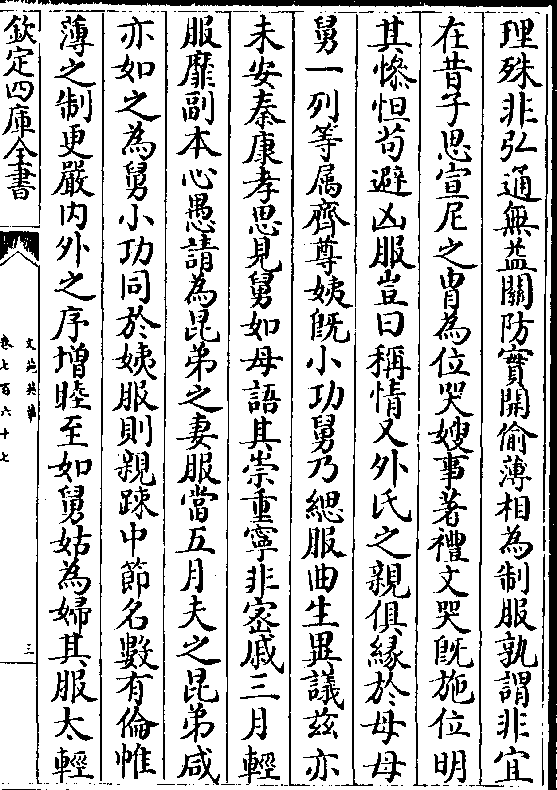 理殊非弘通無益關防實開偷薄相為制服孰謂非宜
在昔子思宣尼之冑為位哭嫂事著禮文哭既施位明
其慘怛苟避凶服豈曰稱情又外氏之親俱緣於母母
舅一列等屬齊尊姨既小功舅乃緦服曲生異議茲亦
未安秦康孝思見舅如母語其崇重寧非密戚三月輕
服靡副本心愚請為昆弟之妻服當五月夫之昆弟咸
亦如之為舅小功同於姨服則親踈中節名數有倫帷
薄之制更嚴内外之序增睦至如舅姑為婦其服太輕
欽定四庫全書
文苑英華
卷七百六十七
三